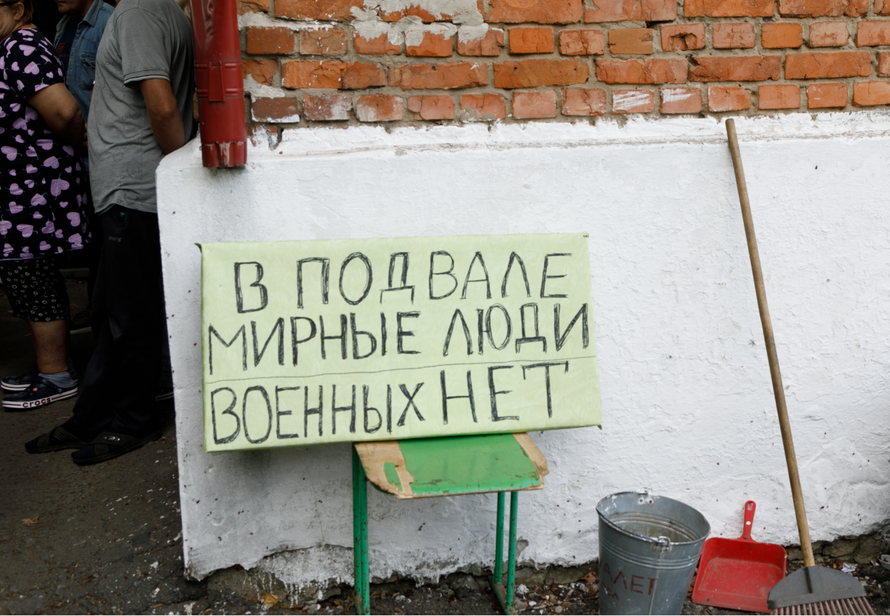 В ПОДВАЛЕ
МИРНЫЕ ЛЮДИ
ВОЕННЫХ НЕТ
crocs